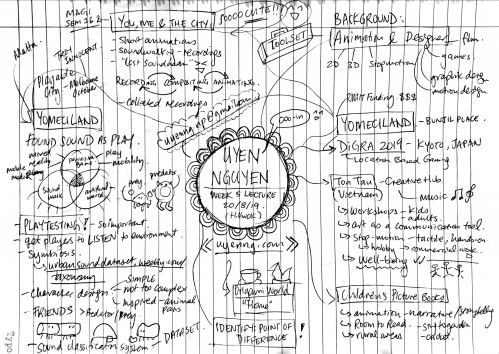 MAGI
SEM 1&2
YOU, ME & THE CITY
SOOOO CUTE!!!
TOOLSET
- Short animations
- Soundwalk - recordings
"Lost Sound dear"
RECORDING COMPOSITING ANIMATING.
- Collated recordings
Malta
TROY
INNOCENT
Playable
City - Melbourne
October
YOMECILAND
FOUND SOUND AS PLAY.
mixed reality
mobile
media
play
mobility
sound
walk
urban
world
Prey
Predator
- PLAYTESTING! - so important
- get players to LISTEN to environment
- Symbiosis.
urban sound dataset,
taxonomy
- Character design
SIMPLE
not too complex
inspired - animal
- FRIENDS > Predator/Prey
- Sound classification system
DATASET
UYEN
NGUYEN
WEEK 5 LECTURE
20/8/19.
<< uyenng.com >>
Origami World
"Home"
IDENTIFY POINT OF
DIFFERENCE!
BACKGROUND:
Animation & Designer
film.
games
graphic design
motion design
2D 3D stopmotion
RMIT Funding $$$
YOMECILAND - BUNJIL PLACE.
DiGRA 2019 - KYOTO, JAPAN
Location Based Gaming
Ton Tau - Creative Hub
Vietnam
MUSIC
Workshops - kids
adults.
art as a communication tool.
Stop-motion - tactile, hands-on
hobby - commercial work
Well-being
Children's Picture Books
animation - narrative/storytelling
Room to Read
rural areas